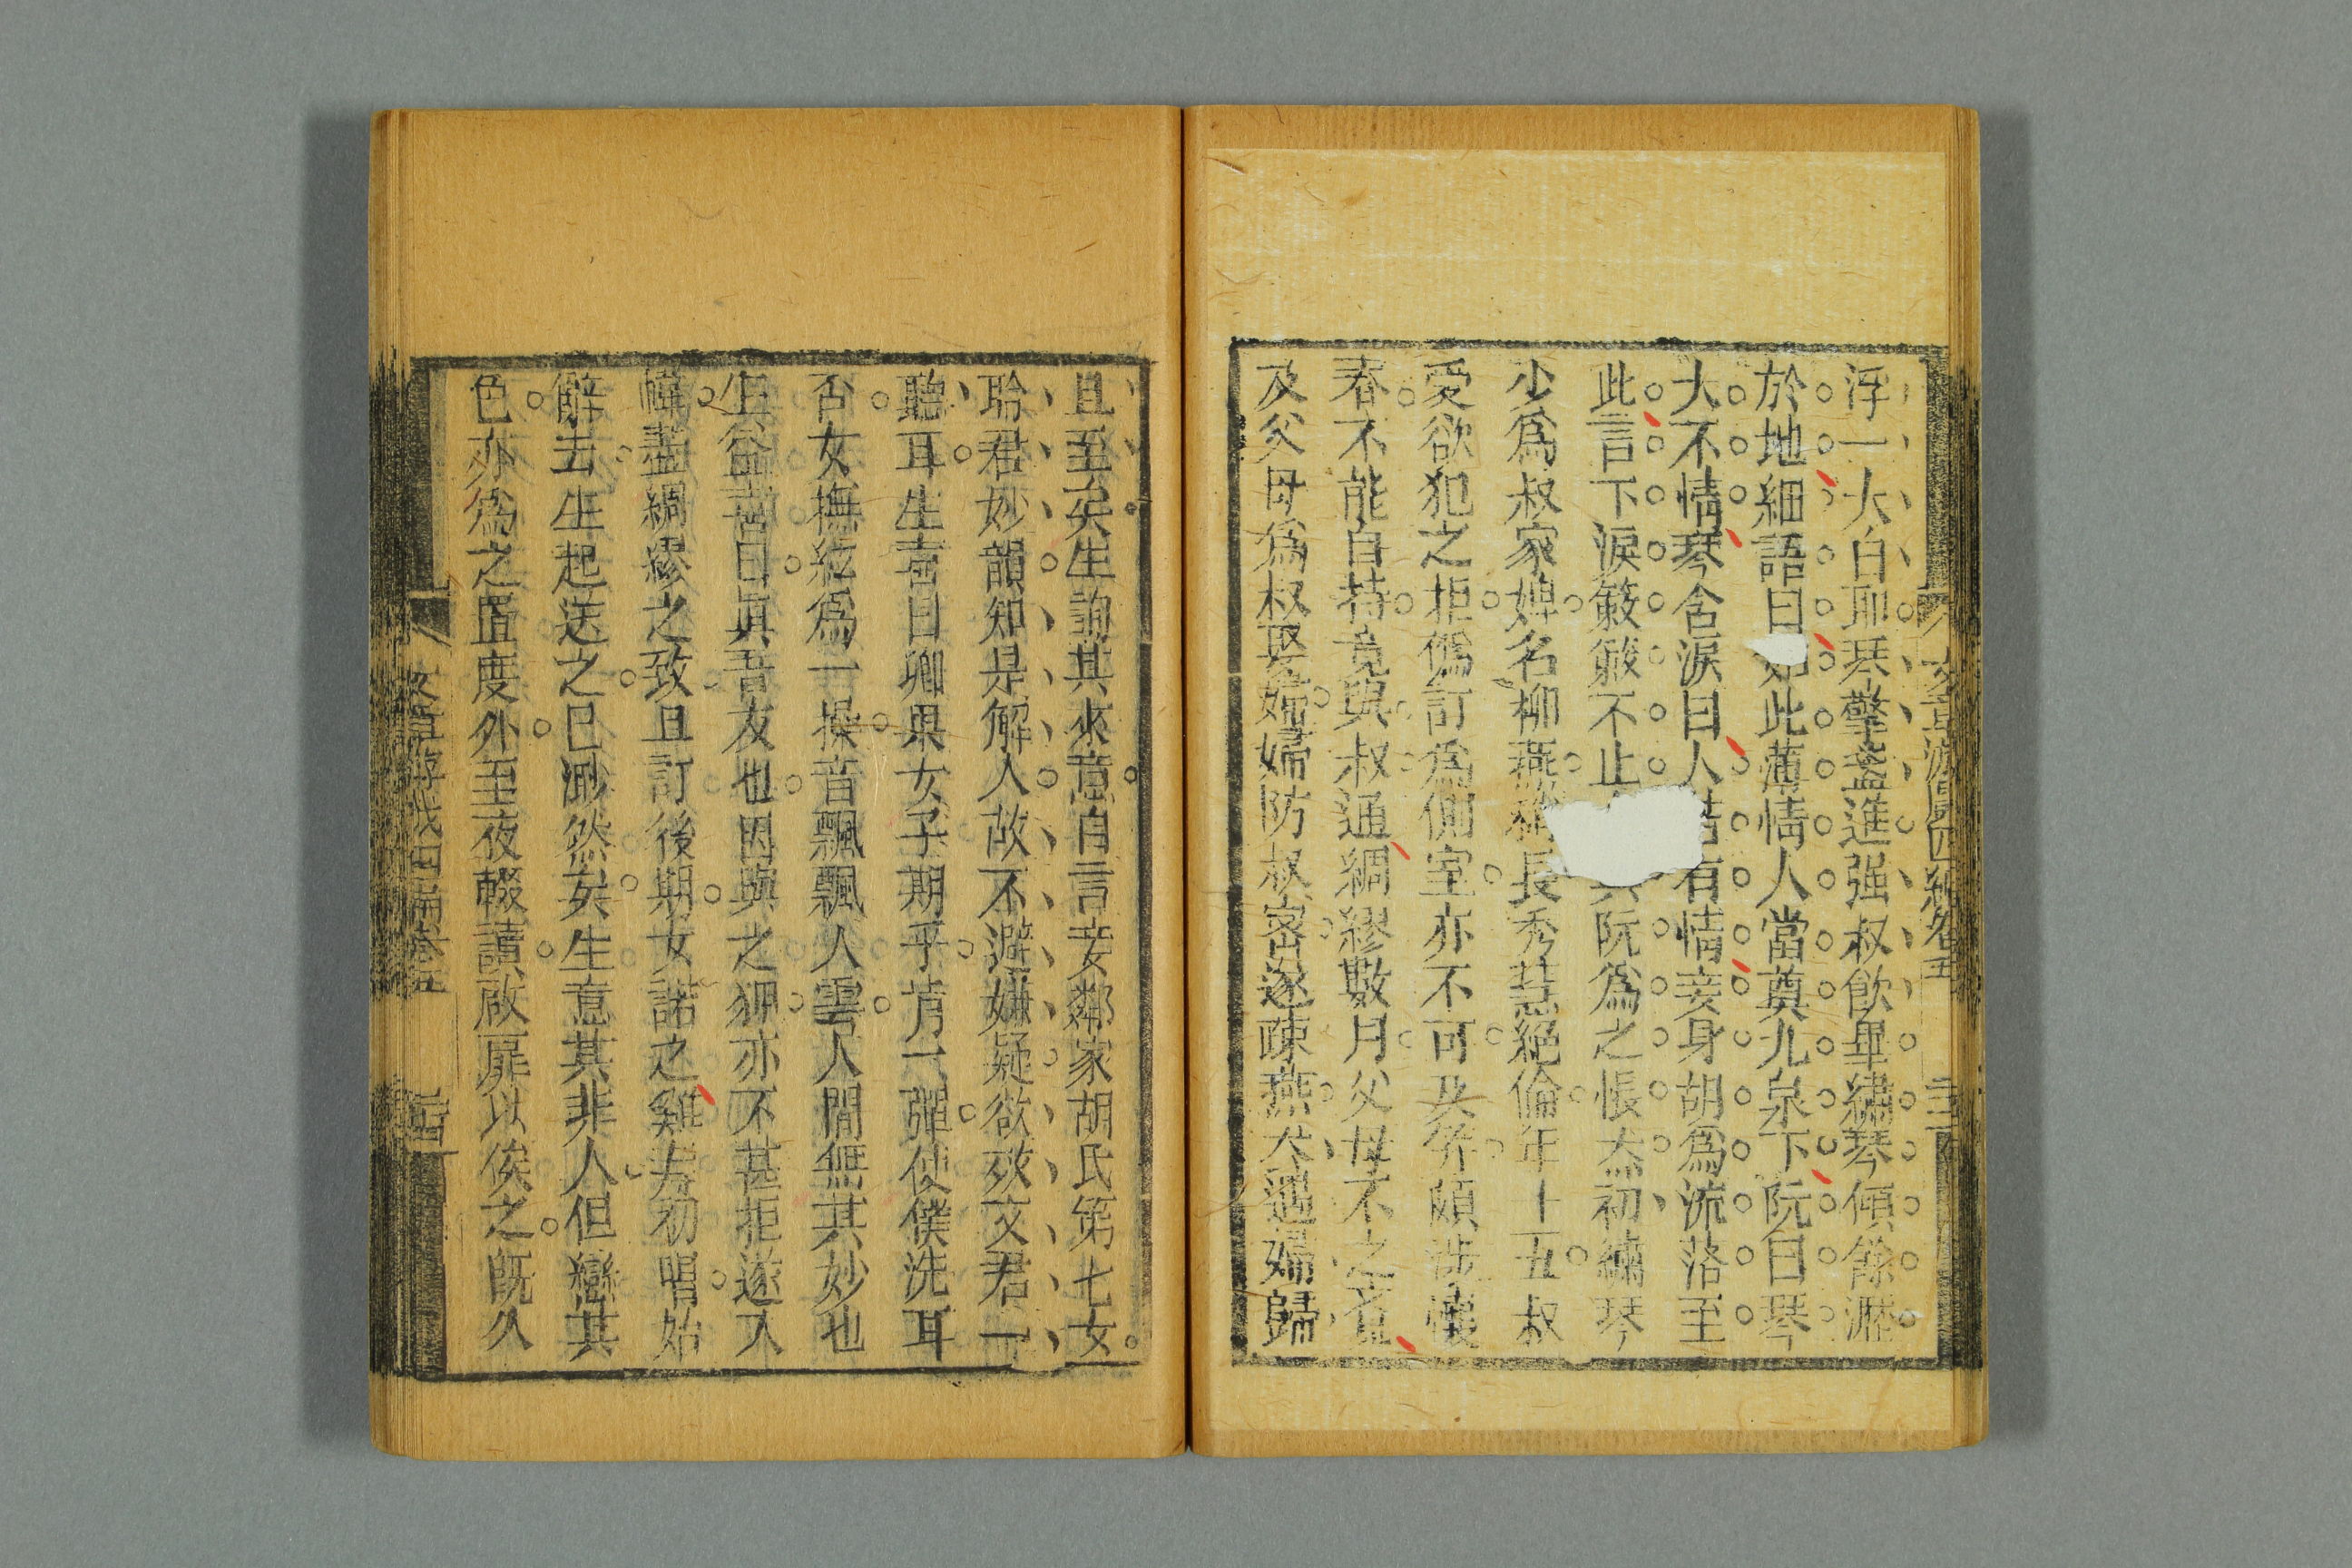 浮一大白耶琴擎盞進强叔飮畢繡琴傾餘瀝
於地細語曰如此薄情人當奠九泉下阮曰琴
大不情琴含淚曰人皆有情妾身胡爲流落至
此言下淚簌簌不止阮爲之悵然初繡琴
少爲叔家婢名柳燕稍長秀慧絕倫年十五叔
愛欲犯之拒僞訂爲側室亦不可及笄頗涉懷
春不能自持竟與叔通綢繆數月父母不之者
及父母爲叔娶婦婦防叔密遂疎燕大遇婦歸
文章游戲四編卷五
且至矣生詢其來意自言妾鄰家胡氏第七女
聆君妙韻知是解人故不避嫌疑欲效文君一
聽耳生喜曰卿果女子期乎肯一彈使僕洗耳
否女撫絃爲一操音飄飄人雲人間無其妙也
生益喜曰眞吾友也因與之狎亦不甚拒遂入
幃盡綢繆之致且訂後期女諾之雞方初唱始
辭去生起送之已渺然矣生意其非人但戀其
色亦爲之置度外至夜輟讀啟扉以俟之旣久
文章游戲四編卷五